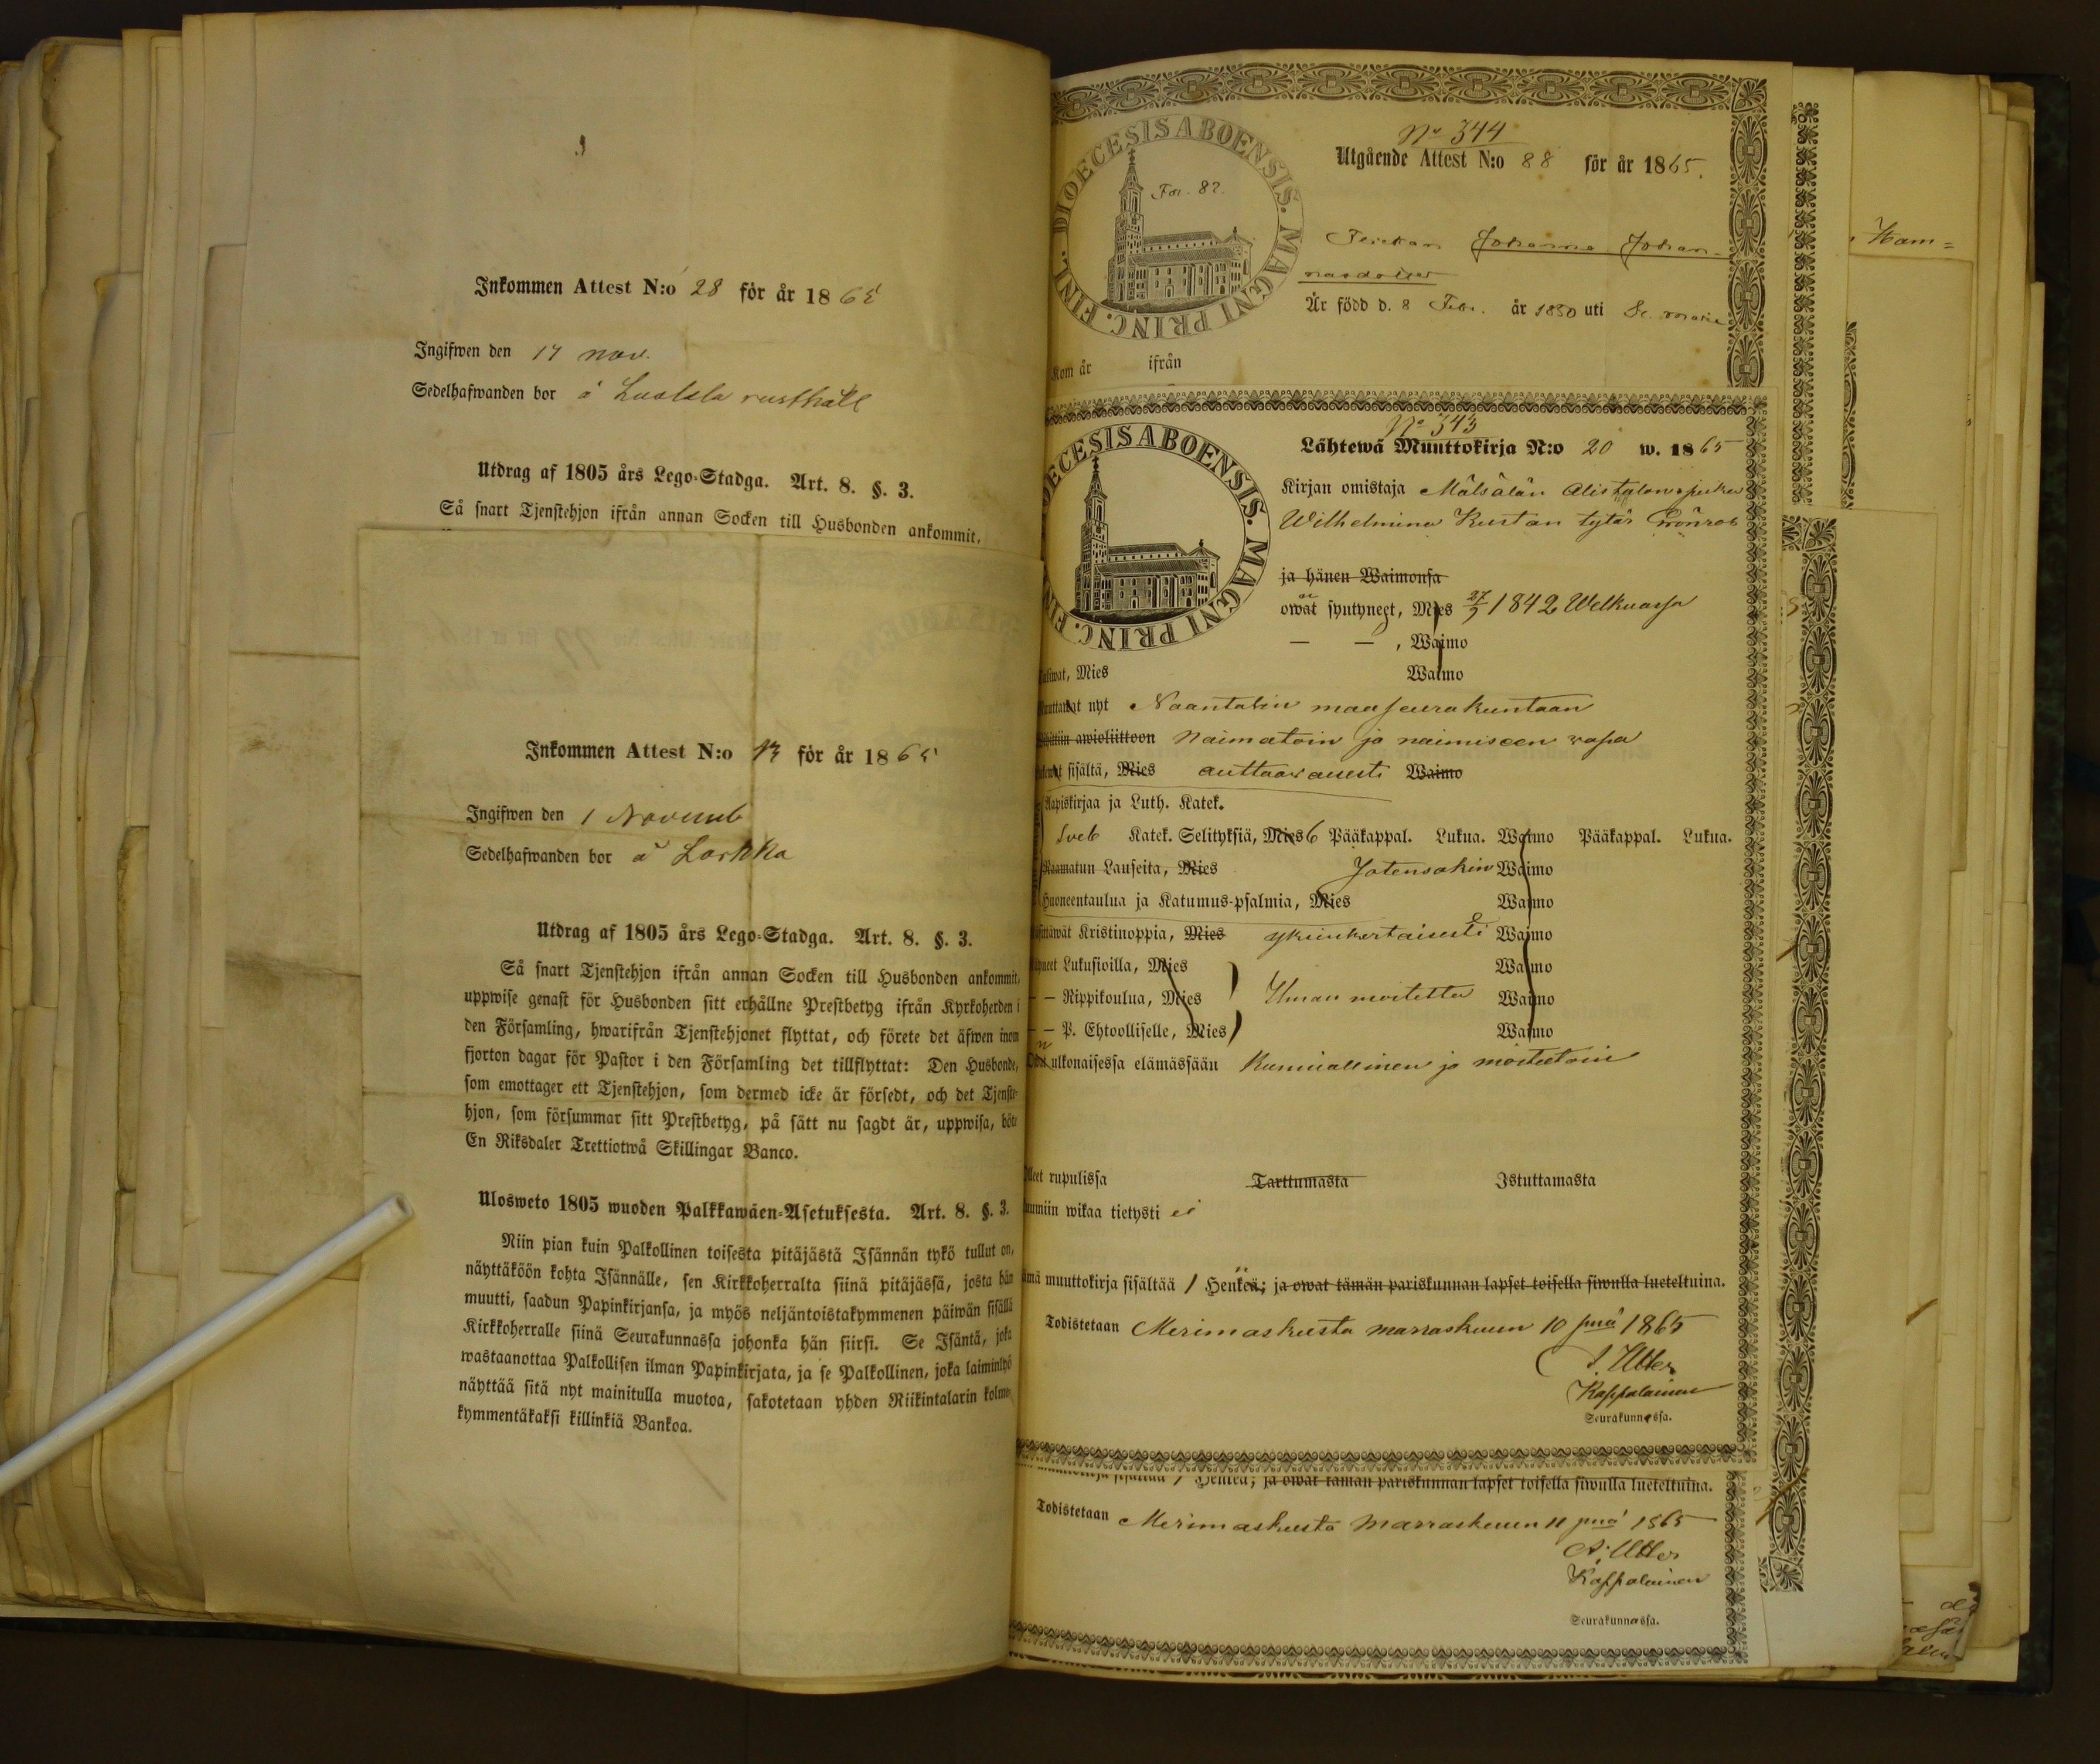 Inkommen Attest N:o 28 för år 1865
Ingifwen den 17 nov.
Sedelhafwanden bor å Luolala rusthåll
Utdrag af 1805 års Lego-Stadga. Art. 8. §. 3.
Så snart Tjenstehjon ifrån annan Socken till Husbonden ankommit,
Inkommen Attest N:o 13 för år 1865
Ingifwen den 1 Novemb
Sedelhafwanden bor å
Utdrag af 1805 års Lego-Stadga. Art. 8. §. 3.
Så snart Tjenstehjon ifrån annan Socken till Husbonden ankommit,
uppwise genast för Husbonden sitt erhållne Prestbetyg ifrån Kyrkoherden i
den Församling, hwarifrån Tjenstehjonet flyttat, och förete det äfwen inom
fjorton dagar för Pastor i den Församling det tillflyttat: Den Husbonde,
som emottager ett Tjenstehjon, som dermed icke är försedt, och det Tjenste-
hjon, som försummar sitt Prestbetyg, på sätt nu sagdt är, uppwisa, böte
En Riksdaler Trettiotwå Skillingar Banco.
Ulosweto 1805 wuoden Palkkawäen-Asetuksesta. Art. 8. §. 3.
Niin pian kuin Palkollinen toisesta pitäjästä Isännän tykö tullut on,
näyttäköön kohta Isännälle, sen Kirkkoherralta siinä pitäjässä, josta hän
muutti, saadun Papinkirjansa, ja myös neljäntoistakymmenen päiwän sisällä
Kirkkoherralle siinä Seurakunnassa johonka hän siirsi. Se Isäntä, joka
wastaanottaa Palkollisen ilman Papinkirjata, ja se Palkollinen, joka laiminlyö
näyttää sitä nyt mainitulla muotoa, sakotetaan yhden Riikintalarin kolme
kymmentäkaksi killinkiä Bankoa.
DIOECESIS ABOENSIS. MAGNI PRINC. FINL.
Fol. 82.
No 344
Utgående Attest N:o 88 för år 1865.
Johanna Johan-
Är född d. 8 Febr. år 1850 uti St. Marie
Kom år ifrån
DIOECESIS ABOENSIS. MAGNI PRINC. FIN
No 343
Lähtewä Muuttokirja N:o 20 w. 1865
Kirjan omistaja Mälsälän Alistalon piika
Wilhelmina Kustan tytär Grönroos
ja hänen Waimonsa
owat syntyneet, Mies 27/5 1842 Welkuassa
— — , Waimo
Mies Waimo
nyt Naantalin maaseurakuntaan
awioliittoon Naimatoin ja naimiseen wapa
sisältä, Mies auttawaisesti Waimo
Aapiskirjaa ja Luth. Katek.
Sveb Katek. Selityksiä, Mies 6 Pääkappal. Lukua. Waimo Pääkappal. Lukua.
Raamatun Lauseita, Mies Jotensakin Waimo
Huoneentaulua ja Katumus-psalmia, Mies Waimo
Kristinoppia, Mies yksinkertaisesti Waimo
Lukusioilla, Mies Waimo
— Rippikoulua, Mies Ilman moitetta Waimo
— P. Ehtoolliselle, Mies Waimo
ulkonaisessa elämässään Kunniallinen ja moitetoin
rupulissa Tarttumasta Istuttamasta
wikaa tietysti ei
muuttokirja sisältää 1 Henken; ja owat tämän pariskunnan lapset toisella siwulla lueteltuina.
Todistetaan Merimaskusta marraskuun 10 pnä 1865
Kappalainen
Seurakunnassa.
ja owat tämän pariskunnan lapset toisella siwulla lueteltuina.
Todistetaan Merimaskusta Marraskuun 11 pnä 1865
Kappalainen
Seurakunnassa.
Ham=